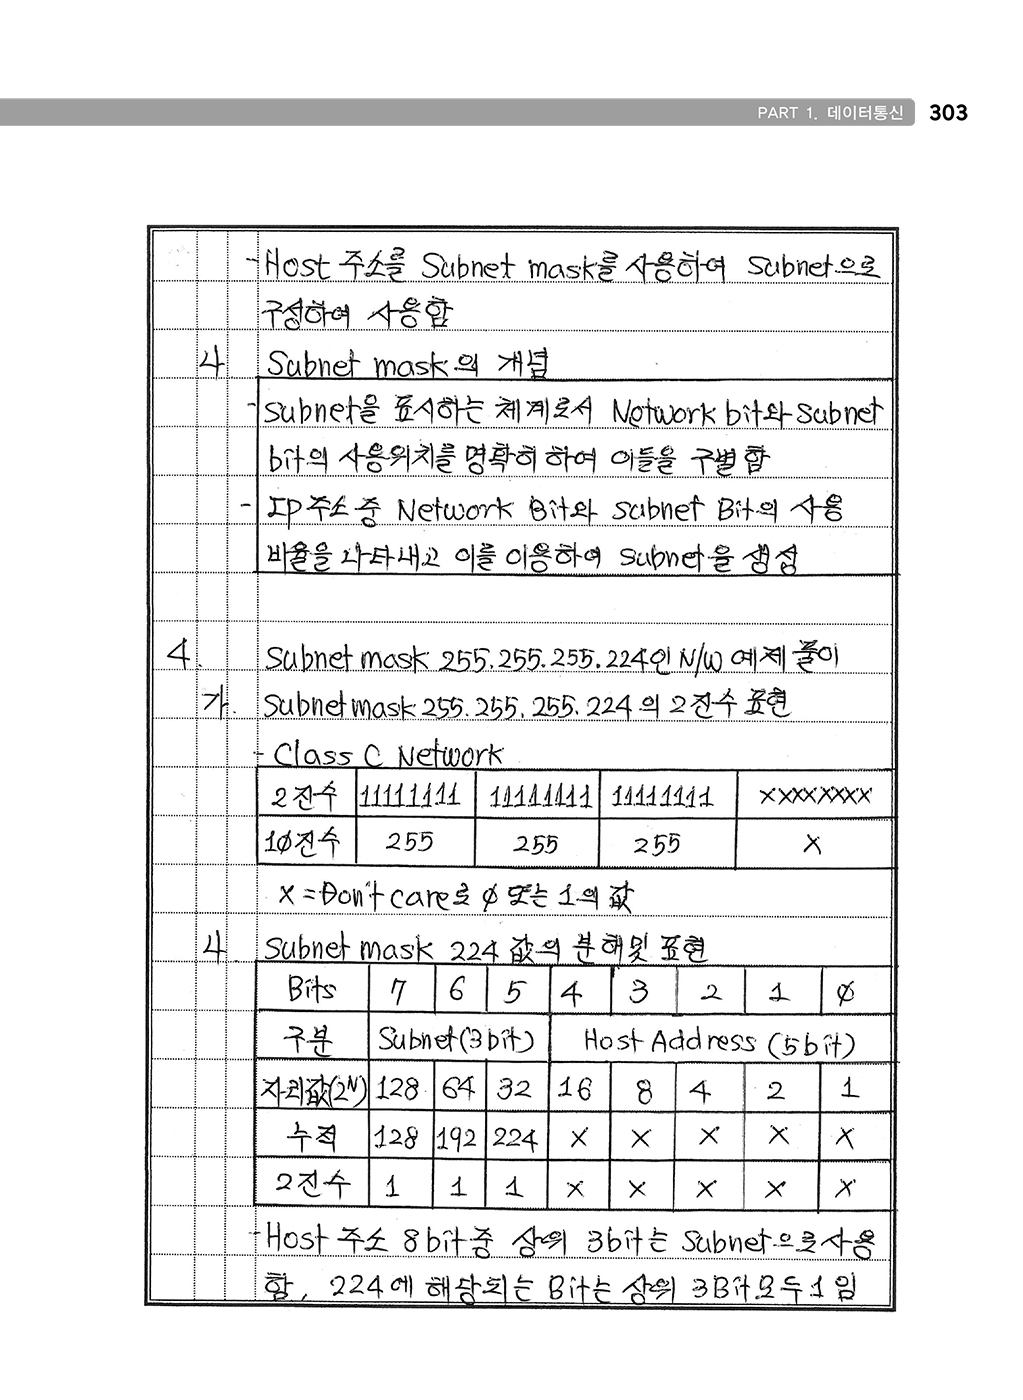 PART 1. 데이터통신 303
- Host 주소를 Subnet mask를 사용하여 Subnet으로
구성하여 사용함
나 Subnet mask의 개념
- Subnet을 표시하는 체계로서 Network bit와 Subnet
bit의 사용위치를 명확히 하여 이들을 구별함
- IP주소 중 Network Bit와 Subnet Bit의 사용
비율을 나타내고 이를 이용하여 Subnet을 생성
4. Subnet mask 255.255.255.224인 N/W 예제 풀이
가. Subnet mask 255.255.255.224의 2진수 표현
- Class C Network
2진수 11111111 11111111 11111111 xxxxxxxx
10진수 255 255 255 X
X = Don't care로 0 또는 1의 값
나 Subnet mask 224 값의 분해 및 표현
Bits 7 6 5 4 3 2 1 0
구분 Subnet(3bit) Host Address (5bit)
자리값(2ᴺ) 128 64 32 16 8 4 2 1
누적 128 192 224 X X X X X
2진수 1 1 1 X X X X X
- Host 주소 8bit 중 상위 3bit는 Subnet으로 사용
함, 224에 해당되는 Bit는 상위 3Bit 모두 1임